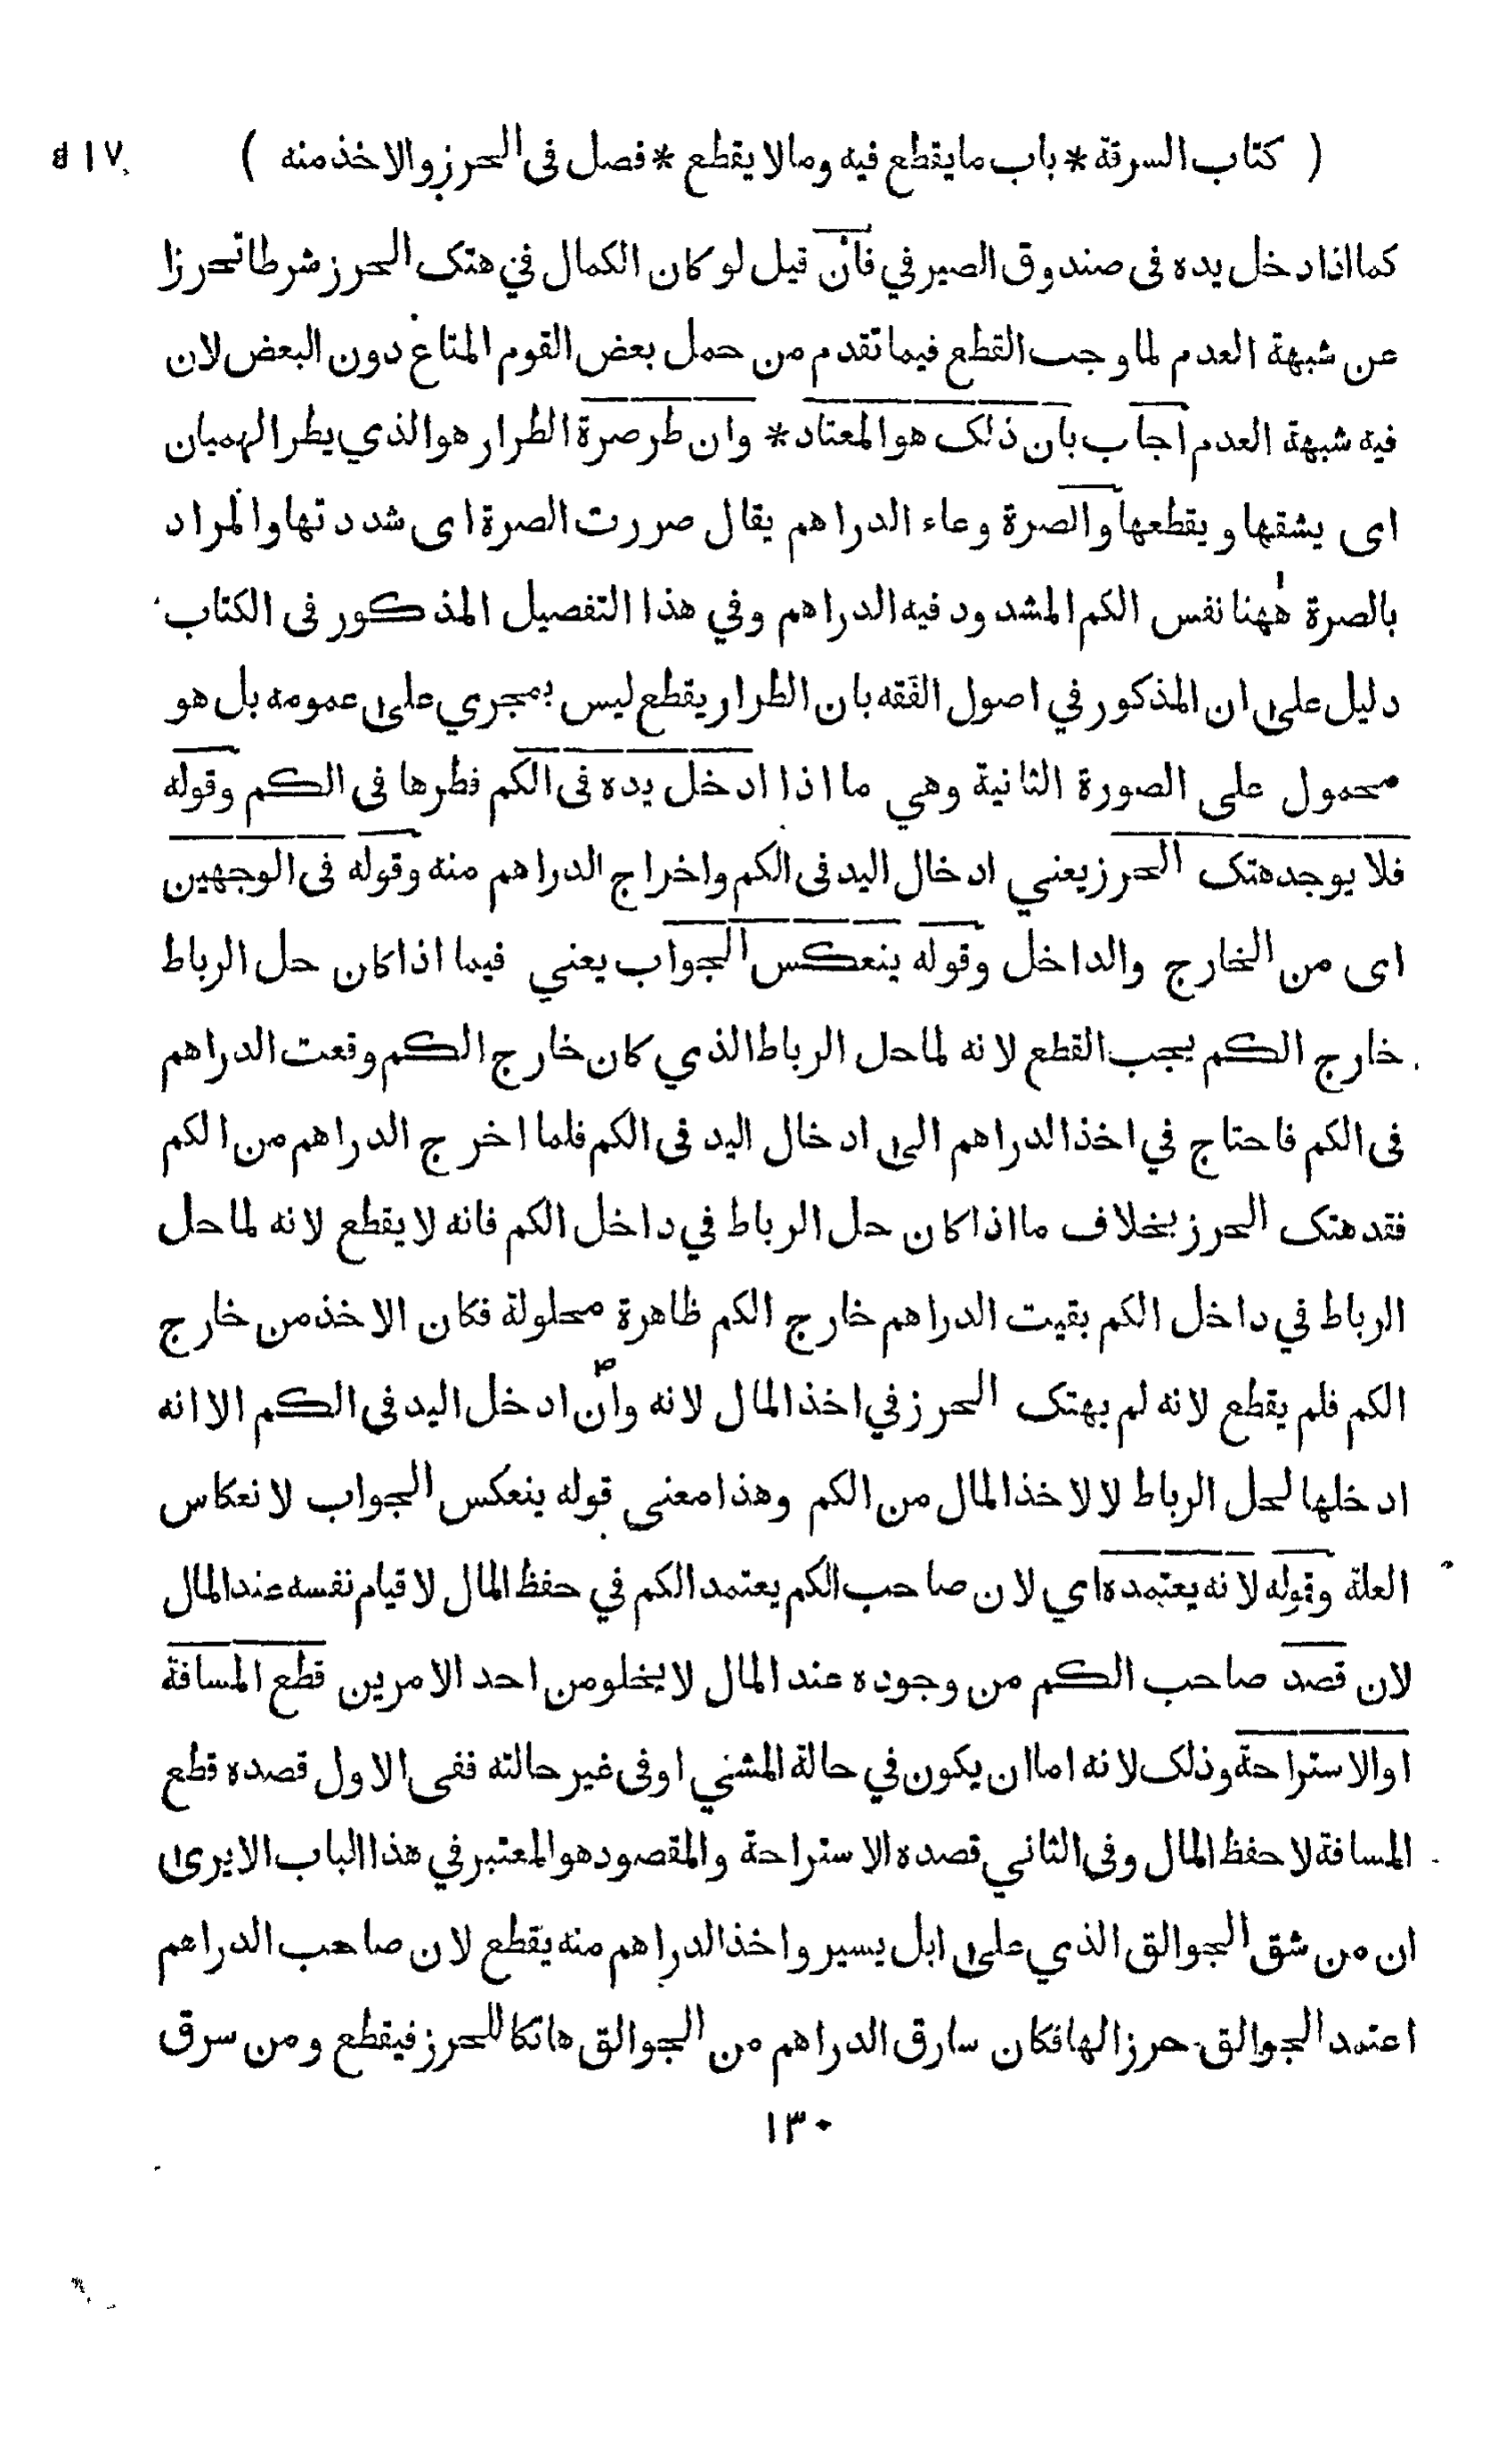 ( كتاب السرقة * باب ما يقطع فيه وما لا يقطع * فصل فى الحرز والاخذ منه ) ٥١٧
كما اذا دخل يده فى صندوق الصيرفي فان قيل لو كان الكمال في هتك الحرز شرطا تحرزا
عن شبهة العدم لما وجب القطع فيما تقدم من حمل بعض القوم المتاع دون البعض لان
فيه شبهة العدم اجاب بان ذلك هو المعتاد * وان طر صرة الطرار هو الذي يطر الهميان
اى يشقها ويقطعها والصرة وعاء الدراهم يقال صررت الصرة اى شددتها والمراد
بالصرة ههنا نفس الكم المشدود فيه الدراهم وفي هذا التفصيل المذكور فى الكتاب
دليل على ان المذكور في اصول الفقه بان الطرار يقطع ليس بمجري على عمومه بل هو
محمول على الصورة الثانية وهي ما اذا ادخل يده فى الكم فطرها فى الكم وقوله
فلا يوجد هتك الحرز يعني ادخال اليد فى الكم واخراج الدراهم منه وقوله فى الوجهين
اى من الخارج والداخل وقوله ينعكس الجواب يعني فيما اذا كان حل الرباط
خارج الكم يجب القطع لانه لما حل الرباط الذي كان خارج الكم وقعت الدراهم
فى الكم فاحتاج في اخذ الدراهم الى ادخال اليد فى الكم فلما اخرج الدراهم من الكم
فقد هتك الحرز بخلاف ما اذا كان حل الرباط في داخل الكم فانه لا يقطع لانه لما حل
الرباط في داخل الكم بقيت الدراهم خارج الكم ظاهرة محلولة فكان الاخذ من خارج
الكم فلم يقطع لانه لم يهتك الحرز في اخذ المال لانه وان ادخل اليد فى الكم الا انه
ادخلها لحل الرباط لا لاخذ المال من الكم وهذا معنى قوله ينعكس الجواب لانعكاس
العلة وقوله لانه يعتمده اي لان صاحب الكم يعتمد الكم في حفظ المال لا قيام نفسه عند المال
لان قصد صاحب الكم من وجوده عند المال لا يخلو من احد الامرين قطع المسافة
او الاستراحة وذلك لانه اما ان يكون في حالة المشي او فى غير حالته ففى الاول قصده قطع
المسافة لا حفظ المال وفى الثاني قصده الاستراحة والمقصود هو المعتبر في هذا الباب الا يرى
ان من شق الجوالق الذي على ابل يسير واخذ الدراهم منه يقطع لان صاحب الدراهم
اعتمد الجوالق حرزا لها فكان سارق الدراهم من الجوالق هاتكا للحرز فيقطع ومن سرق
١٣٠